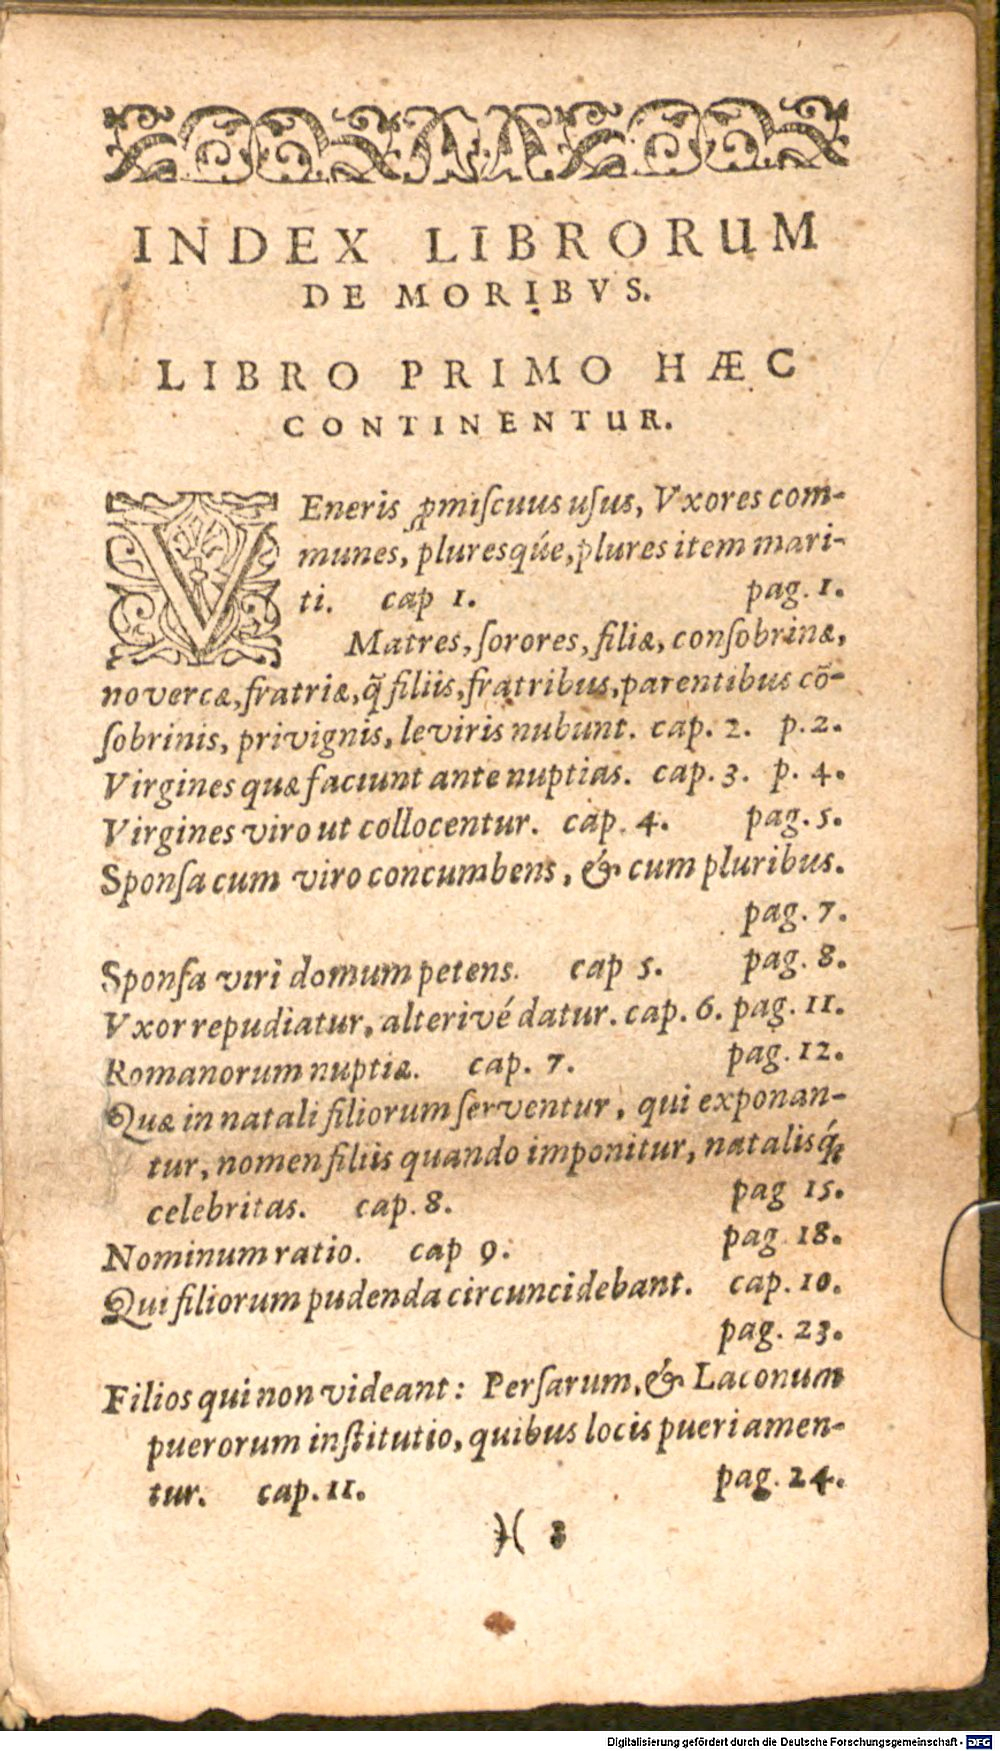 INDEX LIBRORUM
DE MORIBVS.
LIBRO PRIMO HÆC
CONTINENTUR.
VEneris ꝓmiſcuus uſus, Vxores com-
munes, pluresqúe, plures item mari-
ti. cap 1. pag. 1.
Matres, ſorores, filiæ, conſobrinæ,
novercæ, fratriæ, q̃ filiis, fratribus, parentibus cõ-
ſobrinis, privignis, leviris nubunt. cap. 2. p. 2.
Virgines quæ faciunt ante nuptias. cap. 3. p. 4.
Virgines viro ut collocentur. cap. 4. pag. 5.
Sponſa cum viro concumbens, & cum pluribus.
pag. 7.
Sponſa viri domum petens. cap 5. pag. 8.
Vxor repudiatur, alterivé datur. cap. 6. pag. 11.
Romanorum nuptiæ. cap. 7. pag. 12.
Quæ in natali filiorum ſerventur, qui exponan-
tur, nomen filiis quando imponitur, natalisq́;
celebritas. cap. 8. pag 15.
Nominum ratio. cap 9. pag 18.
Qui filiorum pudenda circuncidebant. cap. 10.
pag. 23.
Filios qui non videant: Perſarum, & Laconum
puerorum inſtitutio, quibus locis pueri amen-
tur. cap. 11. pag. 24.
)( 3
Digitalisierung gefördert durch die Deutsche Forschungsgemeinschaft - DFG